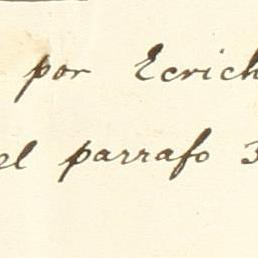 por Ecrich
el parrafo 3